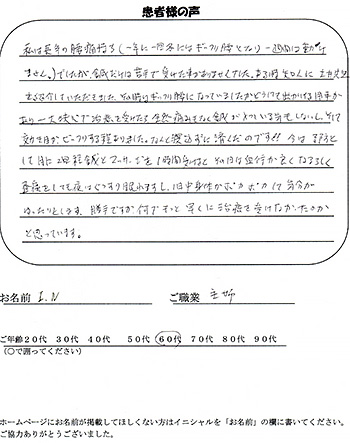 患者様の声
私は長年の腰痛持ち(一年に一回位にはギックリ腰となり一週間は動け
ません。)でしたが、鍼だけは苦手で受けた事がありませんでした。ある時知人に
を紹介していただきました。その時もギックリ腰になっていましたがどうしても出かける用事が
あり一大決心で治療を受けたら全然痛みもなく鍼が入っている感じもしないし、そして
効き目がビックリする程ありました。なんと寝込まずに済んだのです!!今は予防と
して月に2回程鍼とマッサージを1時間受けるとその日は血行が良くなるらしく
昼寝をしても夜はぐっすり眠れますし、1日中身体がポカポカして気分が
ゆったりとします。勝手ですが何でもっと早くに治療を受けなかったのか
と思っています。
お名前 I.N ご職業 主婦
ご年齢20代 30代 40代 50代 60代 70代 80代 90代
(○で囲ってください)
ホームページにお名前が掲載してほしくない方はイニシャルを「お名前」の欄に書いてください。
ご協力ありがとうございました。